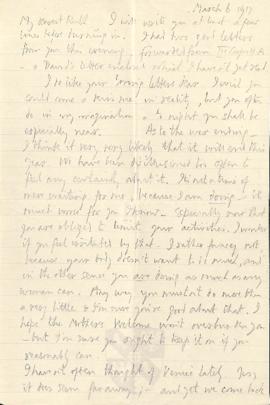 March 6 1917
My dearest Ruth I will write you at least a few
lines before turning in. I had two good letters
from you this evening - forwarded from
- & David's letter enclosed which I haven't yet read
I do like your loving letters dear. I wish you
could come & kiss me in reality, but you often
do in my imagination & to night you shall be
especially near. As to the war ending -
I think it very very likely that it will end this
year. We have been disillusioned too often to
feel any certainty about it. Its not a time of
mere waiting for me, because I am doing - it
much worse for you I know. Especially now that
you are obliged to limit your activities. I wonder
if you feel irritated by that. I rather fancy not
because your body doesn't want to do more, and
in the other sense you are doing as much as any
woman can. Any way you mustn't do more than
a very little & I'm sure you're good about that. I
hope the Mothers Welcome won't overburden you
- but I'm sure you ought to keep it on if you
reasonably can.
I haven't often thought of Venice lately. Yes,
it does seem far away; - and yet we come back